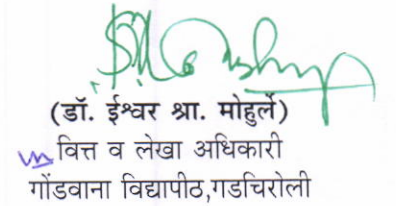 (डॉ. ईश्वर श्रा. मोहुर्ले)
वित्त व लेखा अधिकारी
गोंडवाना विद्यापीठ,गडचिरोली